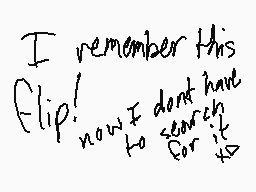 I remember this
flip!
now I dont have
to search
for it
xD